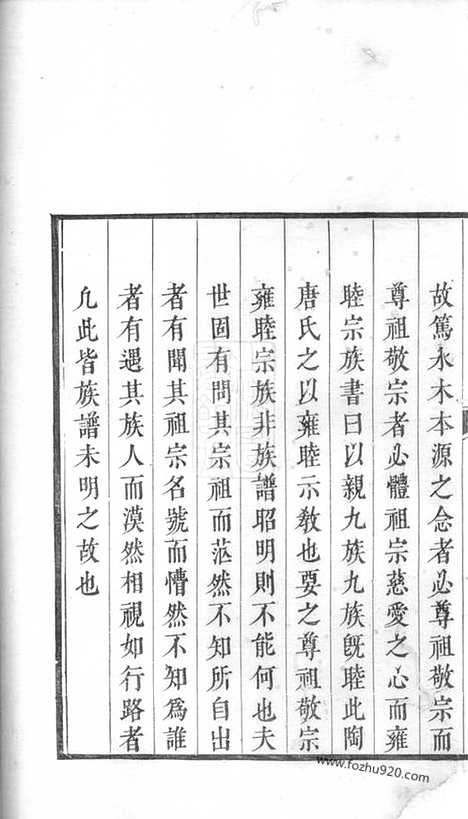 故篤水木本源之念者必尊祖敬宗而
尊祖敬宗者必體祖宗慈愛之心而雍
睦宗族書曰以親九族九族旣睦此陶
唐氏之以雍睦示敎也要之尊祖敬宗
雍睦宗族非族譜昭明則不能何也夫
世固有問其宗祖而茫然不知所自出
者有聞其祖宗名號而懵然不知爲誰
者有遇其族人而漠然相視如行路者
凢此皆族譜未明之故也
www.fozhu920.com